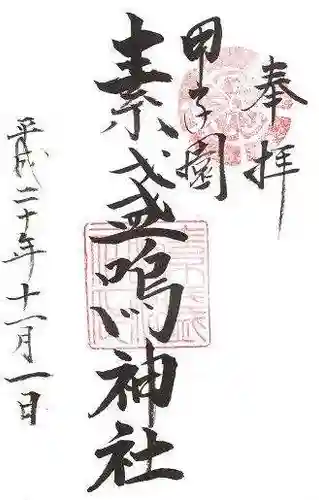 奉拝
甲子園
素盞嗚神社
平成二十年十一月一日